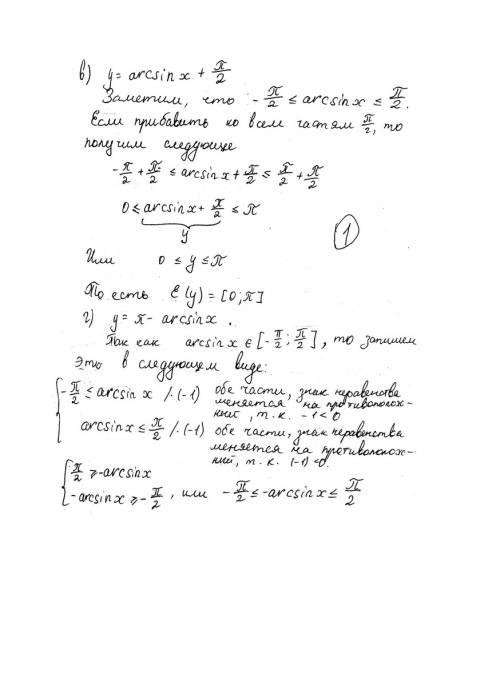 в) y = arcsin x + π/2
Заметим, что -π/2 ≤ arcsin x ≤ π/2.
Если прибавить ко всем частям π/2, то
получим следующее
-π/2 + π/2 ≤ arcsin x + π/2 ≤ π/2 + π/2
0 ≤ arcsin x + π/2 ≤ π
y
1
Или 0 ≤ y ≤ π
То есть E(y) = [0; π]
г) y = π - arcsin x.
Так как arcsin x ∈ [-π/2; π/2], то запишем
это в следующем виде:
-π/2 ≤ arcsin x /·(-1) обе части, знак неравенства
меняется на противополож-
ный, т.к. -1<0
arcsin x ≤ π/2 /·(-1) обе части, знак неравенства
меняется на противополож-
ный, т.к. (-1)<0.
π/2 ≥ -arcsin x
-arcsin x ≥ -π/2, или -π/2 ≤ -arcsin x ≤ π/2